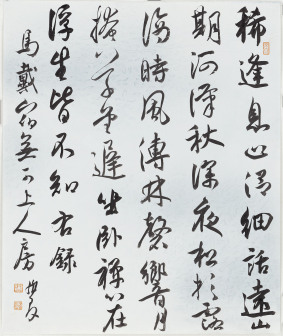 稀逢息心侶細話遠山
期河漢秋深夜松露
滴時風傳林磬響月
掩草堂遲坐卧禪心在
浮生皆不知右錄
馬戴宿無可上人房